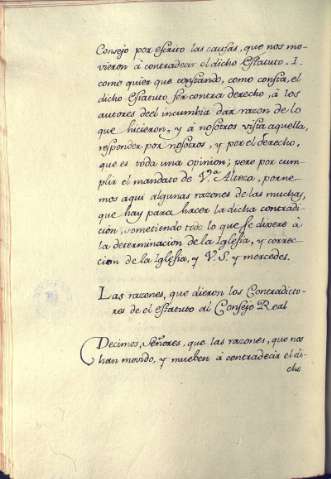 Consejo por escrito las causas, que nos mo-
vieron á contradecir el dicho Estatuto. I
como quier que constando, como consta, el
dicho Estatuto ser contra derecho, á los
autores deel incumbia dar razon de lo
que hicieron, y á nosotros vista aquella,
responder por nosotros, y por el derecho,
que es toda una opinion; pero por cum-
plir el mandato de V.ª Alteza, porne-
mos aqui algunas razones de las muchas,
que hay para hacer la dicha contradi-
cion, sometiendo todo lo que se dixere á
la determinacion de la Iglesia, y correc-
cion de la Iglesia, y V. S. y mercedes.
Las razones, que dieron los Contradicto-
res de el estatuto al Consejo Real
Decimos, Señores, que las razones, que nos
han movido, y mueben á contradecir el di-
cho